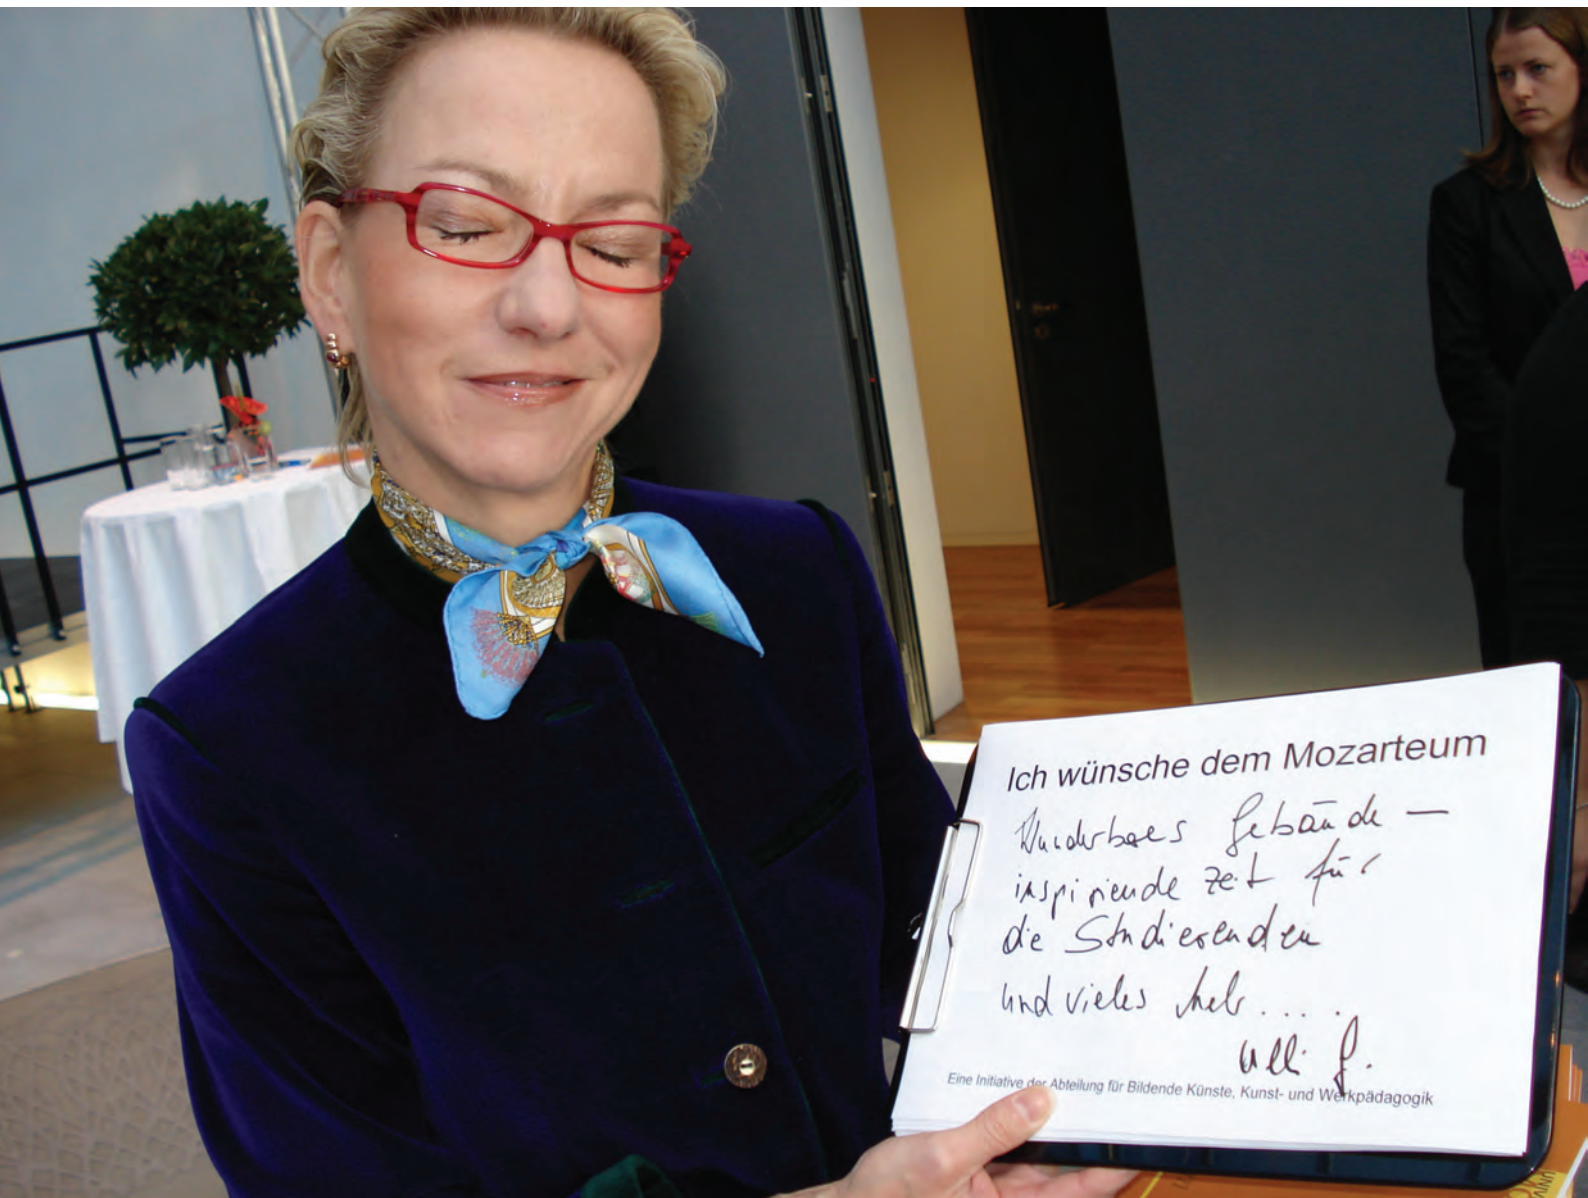 Ich wünsche dem Mozarteum
Wunderbares Gebäude —
inspirierende Zeit für
die Studierenden
und vieles mehr ....
Ulli G.
Eine Initiative der Abteilung für Bildende Künste, Kunst- und Werkpädagogik